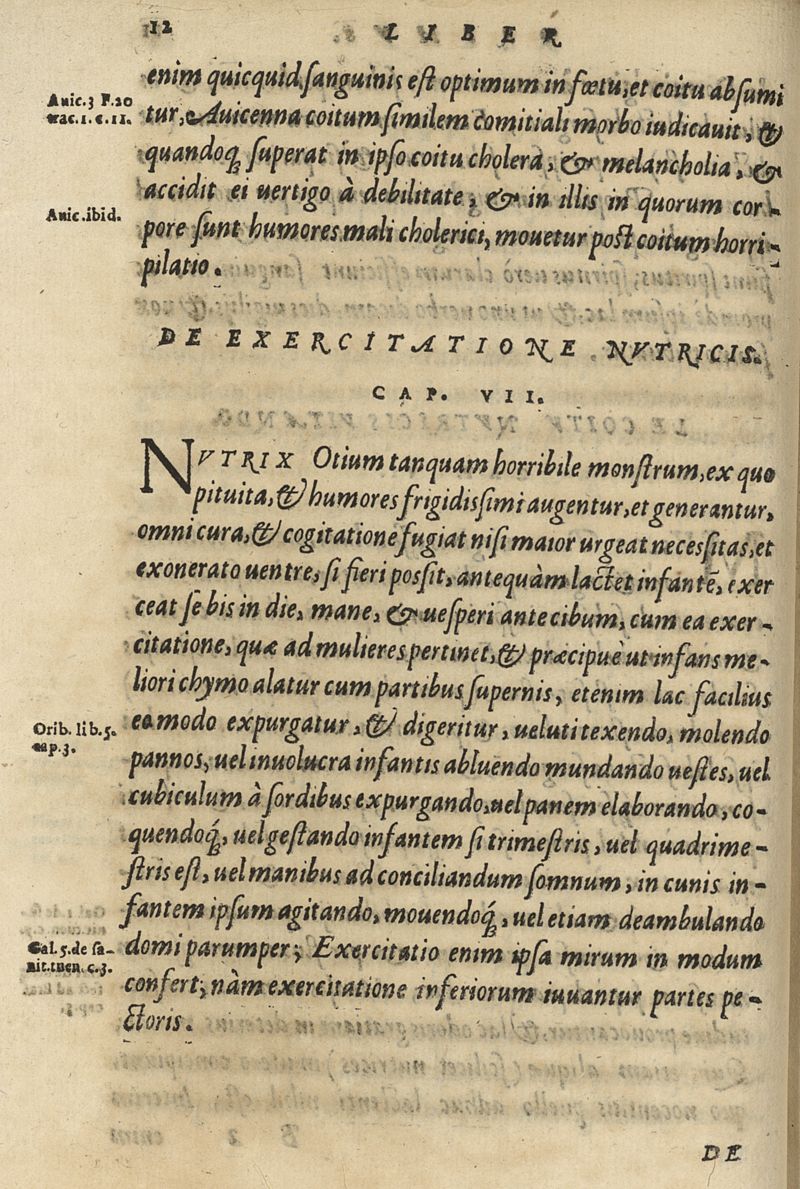 12 LIBER
enim quicquid sanguinis est optimum in fœtu, et coitu absumi
Auic. 3 F. 20
tur, Auicenna coitum similem comitiali morbo iudicauit, &
trac. 1. c. 11.
quandoq́; superat in ipso coitu cholera, & melancholia, &
accidit ei uertigo à debilitate, & in illis in quorum cor-
Auic. ibid.
pore sunt humores mali cholerici, mouetur post coitum horri-
pilatio.
DE EXERCITATIONE NVTRICIS.
CAP. VII.
NVTRIX Otium tanquam horribile monstrum, ex quo
pituita, & humores frigidissimi augentur, et generantur,
omni cura, & cogitatione fugiat nisi maior urgeat necessitas, et
exonerato uentre, si fieri possit, antequàm lactet infantē, exer
ceat se bis in die, mane, & uesperi ante cibum, cum ea exer-
citatione, quæ ad mulieres pertinet, & præcipuè ut infans me-
liori chymo alatur cum partibus supernis, etenim lac facilius
Orib. lib. 5.
eo modo expurgatur, & digeritur, ueluti texendo, molendo
cap. 3.
pannos, uel inuolucra infantis abluendo mundando uestes, uel
cubiculum à sordibus expurgando, uel panem elaborando, co-
quendoq́;, uel gestando infantem si trimestris, uel quadrime-
stris est, uel manibus ad conciliandum somnum, in cunis in-
fantem ipsum agitando, mouendoq́;, uel etiam deambulando
Gal. 5. de sa-
domi parumper; Exercitatio enim ipsa mirum in modum
nit. tuen. c. 3.
confert; nàm exercitatione inferiorum iuuantur partes pe-
ctoris.
DE